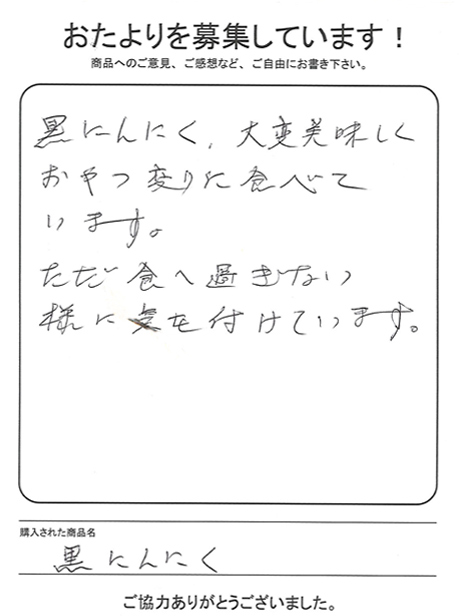 おたよりを募集しています！
商品へのご意見、ご感想など、ご自由にお書き下さい。
黒にんにく、大変美味しく
おやつ変りに食べて
います。
ただ食べ過ぎない
様に気を付けています。
購入された商品名
黒にんにく
ご協力ありがとうございました。